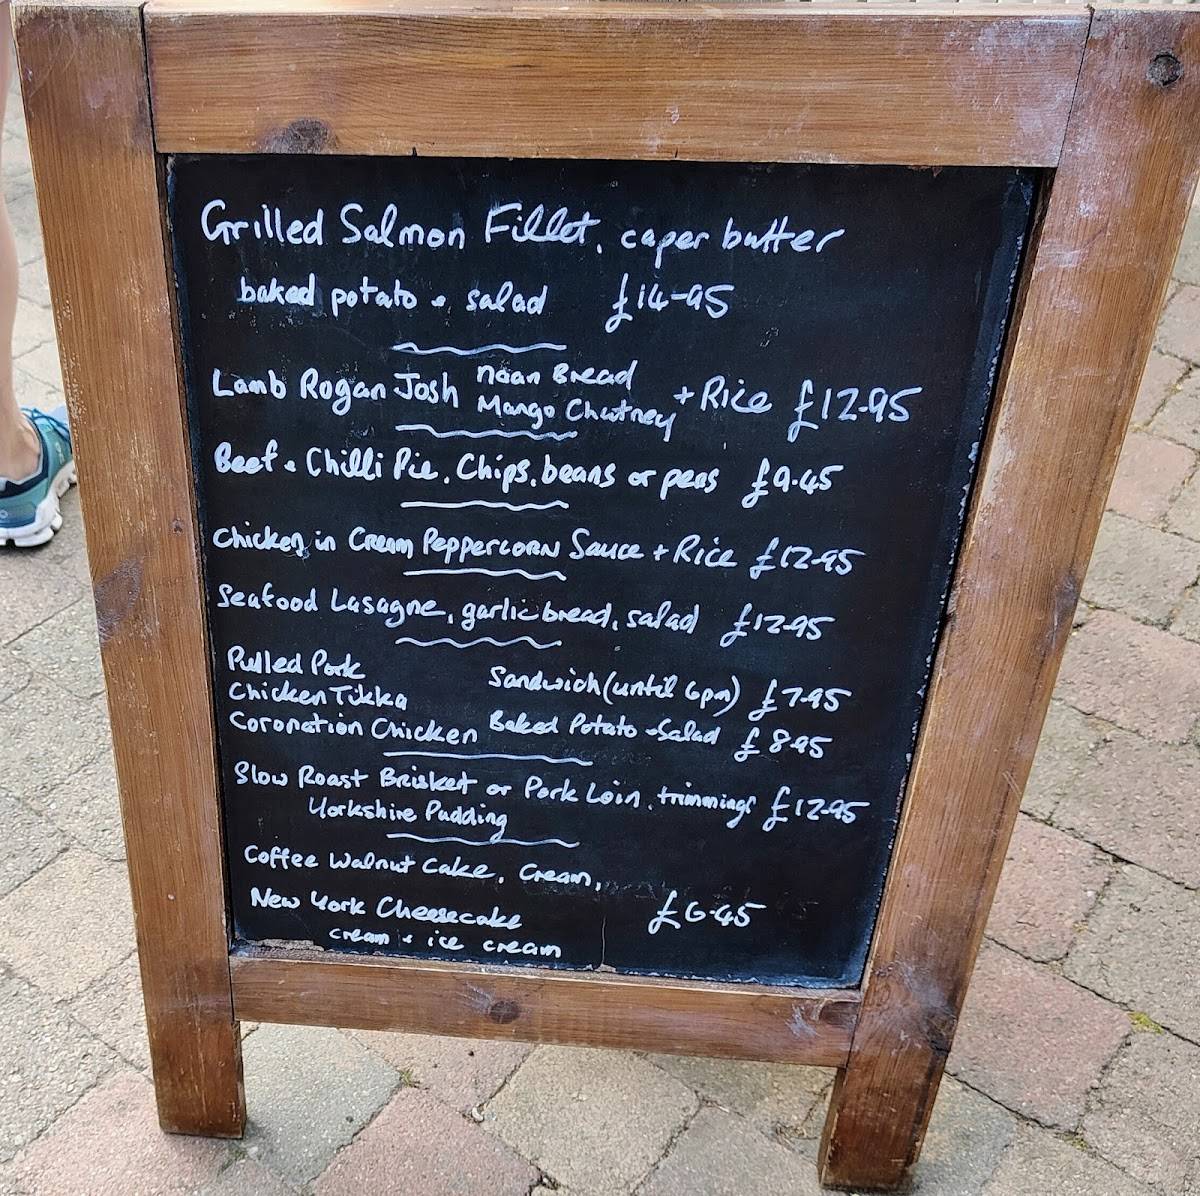 Grilled Salmon Fillet, caper butter
baked potato & salad £14-95
Lamb Rogan Josh Naan Bread Mango Chutney + Rice £12-95
Beef & Chilli Pie, Chips, beans or peas £9-45
Chicken in Cream Peppercorn Sauce + Rice £12-95
Seafood Lasagne, garlic bread, salad £12-95
Pulled Pork
Chicken Tikka Sandwich (until 6pm) £7-95
Coronation Chicken Baked Potato & Salad £8-95
Slow Roast Brisket or Pork Loin, trimmings £12-95
Yorkshire Pudding
Coffee Walnut Cake, Cream,
New York Cheesecake £6-45
cream & ice cream